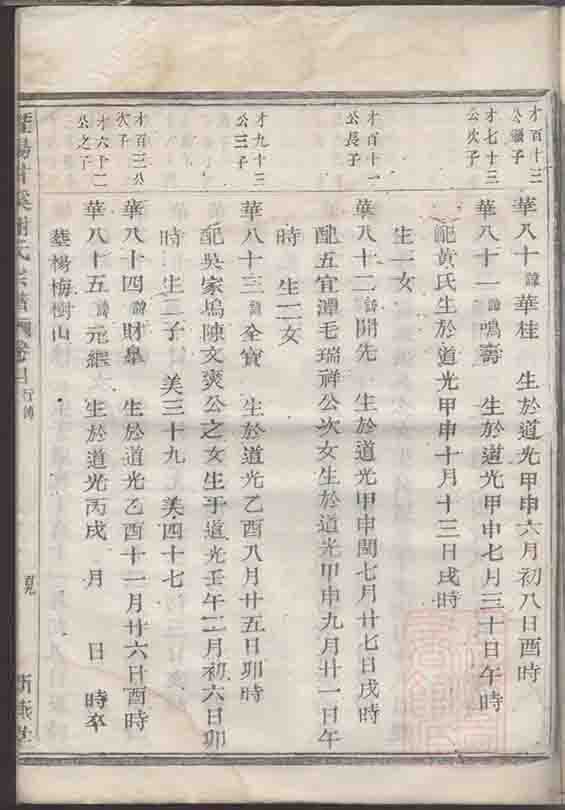 才百十三
公繼子
華八十諱華桂 生於道光甲申六月初八日酉時
才七十三
公次子
華八十一諱鳴壽 生於道光甲申七月三十日午時
配黃氏生於道光甲申十月十三日戌時
生一女
才百十一
公長子
華八十二諱開先 生於道光甲申閏七月廿七日戌時
配五宜潭毛瑞祥公次女生於道光甲申九月廿一日午
時 生二女
才九十三
公三子
華八十三諱全寳 生於道光乙酉八月廿五日卯時
配吳家塢陳文爽公之女生于道光壬午二月初六日卯
時 生二子 美三十九 美四十七
才百三公
次子
華八十四諱財皋 生於道光乙酉十一月廿六日酉時
才六十二
公之子
華八十五諱元繼 生於道光丙戌 月 日 時卒
塟楊梅樹山
氏宗譜 卷 行傳